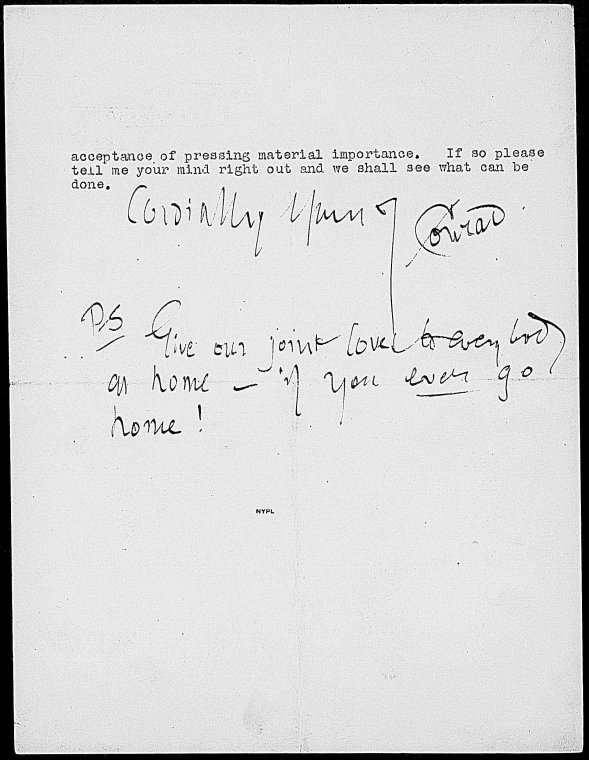 acceptance of pressing material importance. If so please
tell me your mind right out and we shall see what can be
done.
Cordially Yours
J Conrad
PS Give our joint love to everybody
at home – if you ever go
home!
NYPL